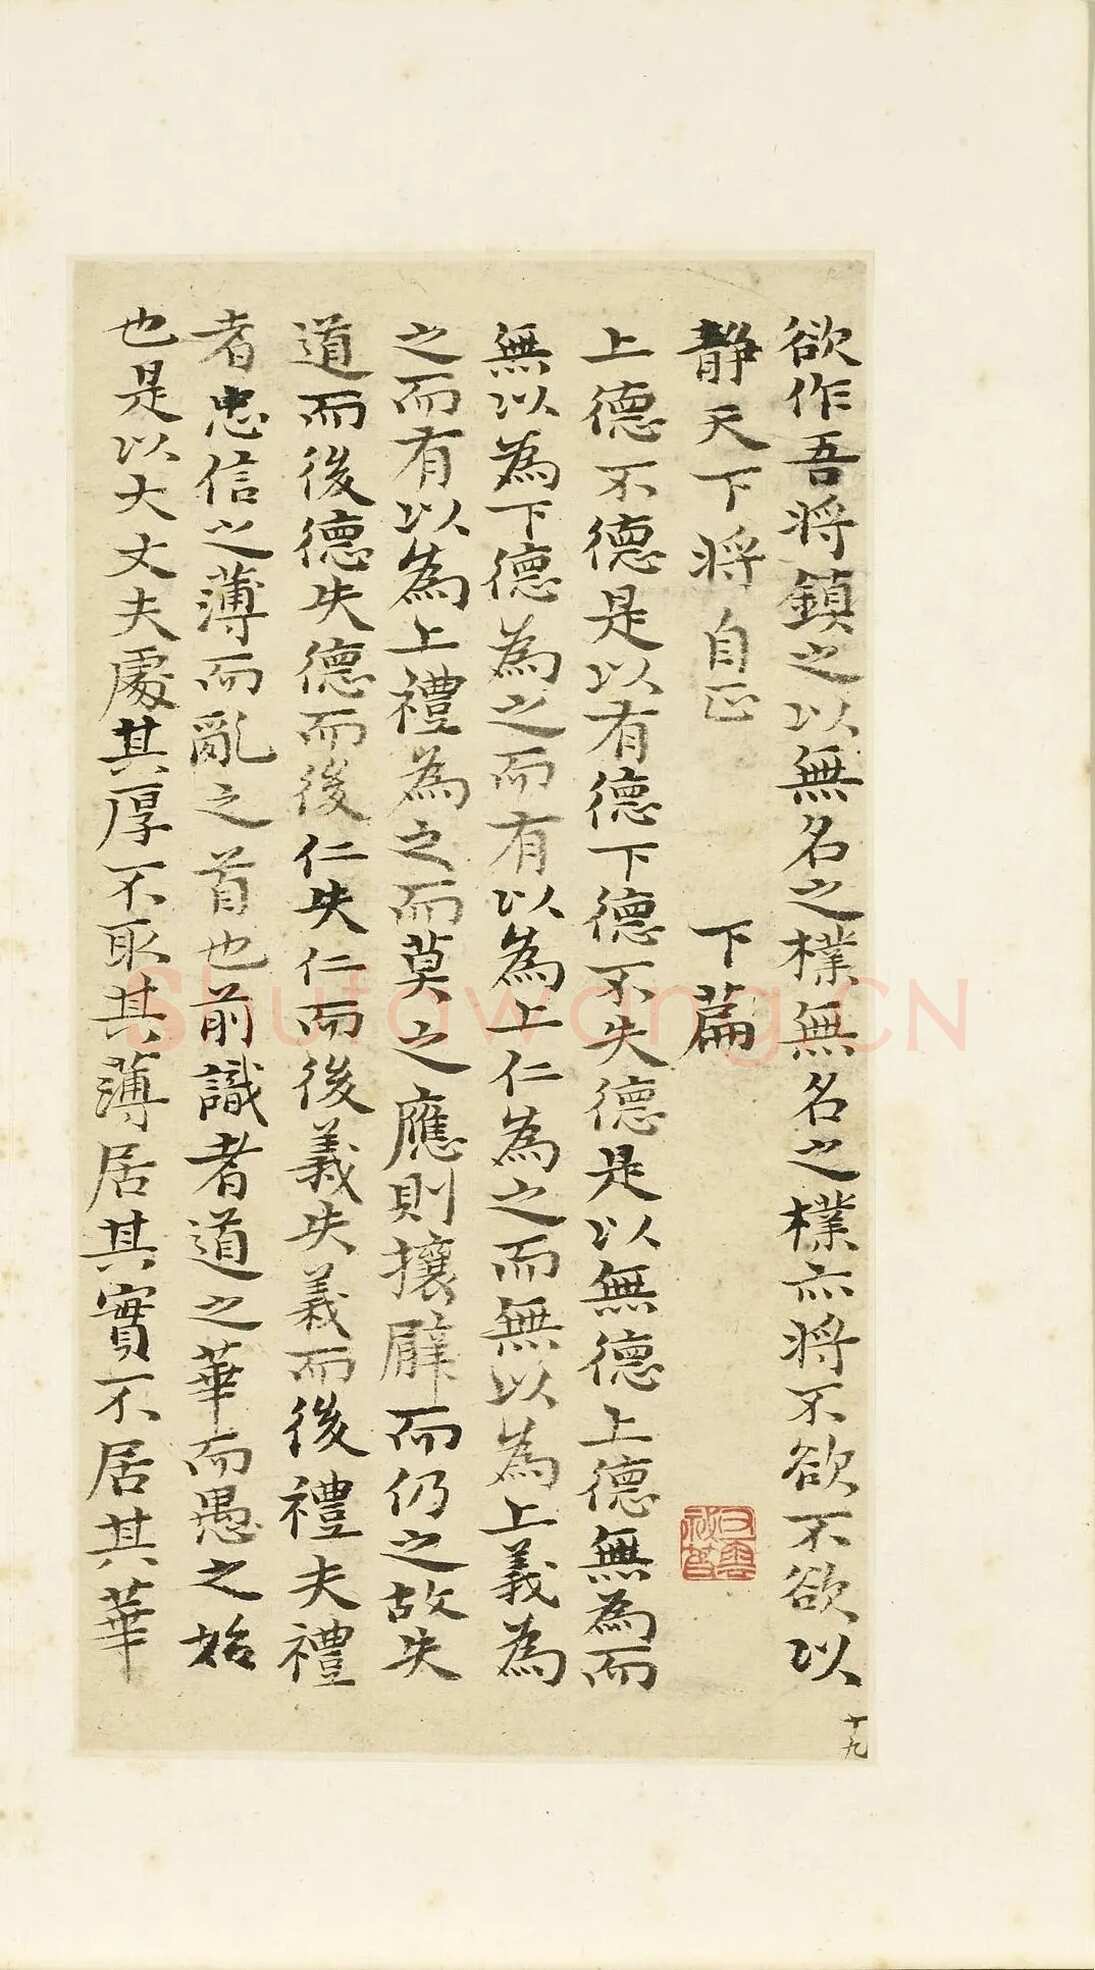 欲作吾将鎮之以無名之樸無名之樸亦将不欲不欲以
静天下将自正 下篇
上德不德是以有德下德不失德是以無德上德無為而
無以為下德為之而有以為上仁為之而無以為上義為
之而有以為上禮為之而莫之應則攘臂而仍之故失
道而後德失德而後仁失仁而後義失義而後禮夫禮
者忠信之薄而亂之首也前識者道之華而愚之始
也是以大丈夫處其厚不取其薄居其實不居其華
十九
Shufawang.CN